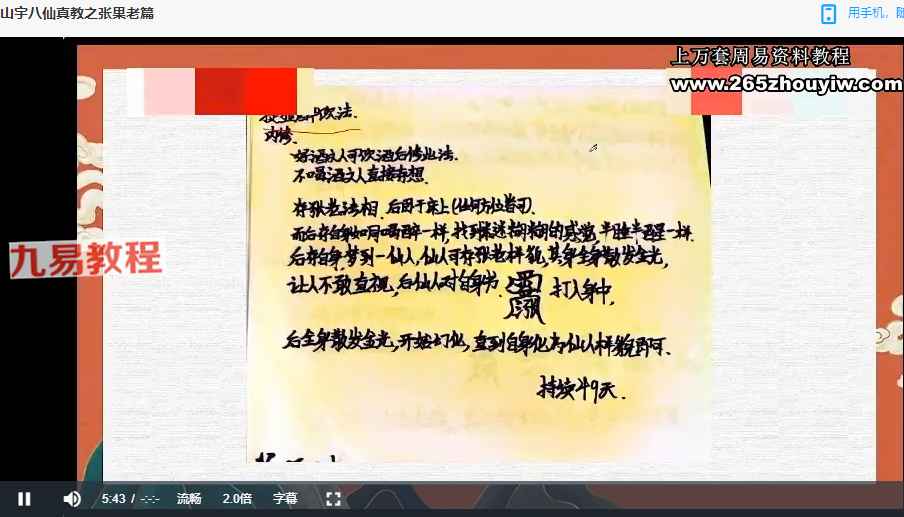 山宇八仙真教之张果老篇
用手机，随
上万套周易资料教程
www.265zhouyiw.com
内修.
好酒之人可饮酒后修此法.
不喝酒之人直接存想.
存张老法相.后卧于床上(任何方位皆可).
而后存自身如同喝醉一样,找到迷迷糊糊的感觉,半睡半醒一样.
后存自身梦到一仙人,仙人可存张老样貌,其身全身散发金光,
九易教程
让人不敢直视,后仙人对自身书 打入身中,
后全身散发金光,开始幻化,直到自身化为仙人样貌即可.
持续49天.
5:43 / -:-:-
流畅
2.0倍
字幕